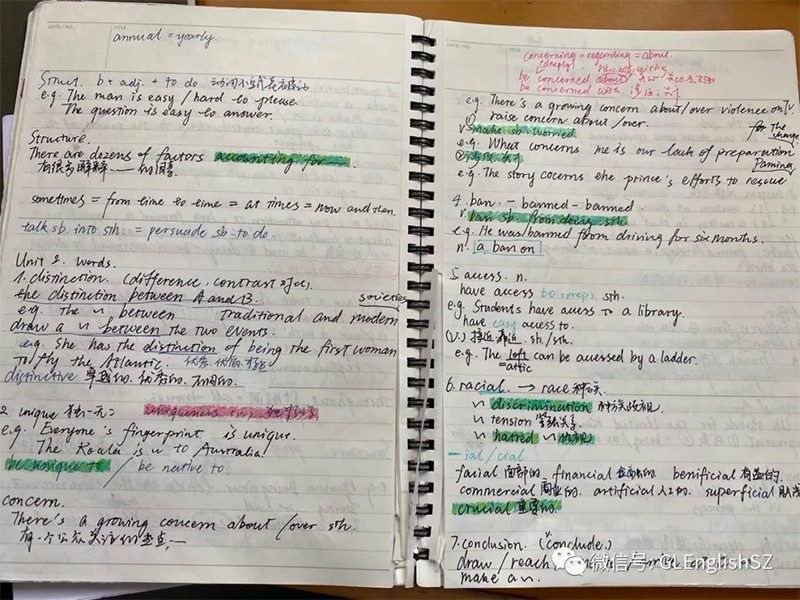 annual = yearly
Struct. b + adj. + to do
e.g. The man is easy / hard to please.
The question is easy to answer.
Structure.
There are dozens of factors accounting for
sometimes = from time to time = at times = now and then.
talk sb. into sth. = persuade sb. to do.
Unit 2. Words.
1. distinction. (difference, contrast
the distinction between A and B.
e.g. The ~ between traditional and modern societies
draw a ~ between the two events.
e.g. She has the distinction of being the first woman
to fly the Atlantic.
distinctive
2 unique 独一无二 uniqueness n.
e.g. Everyone's fingerprint is unique.
The Koala is ~ to Australia!
be unique to / be native to.
concern.
There's a growing concern about / over sth.
concerning = regarding = about.
(deeply)
be concerned about
be concerned with
e.g. There's a growing concern about / over violence on TV.
① raise concern about / over.
v. make sb worried
e.g. What concerns me is our lack of preparation for the change
e.g. The story cocerns the prince's efforts to rescue
4. ban. - banned - banned
v. ban sb from doing sth.
e.g. He was banned from driving for six months.
n. a ban on
5 access. n.
have access to (prep.) sth.
e.g. Students have access to a library.
have easy access to.
(v.) 接近 靠近 sb./sth.
e.g. The loft can be accessed by a ladder.
= attic
6. racial. → race 种族.
~ discrimination 种族歧视.
~ tension
~ hatred
- ial / cial
facial 面部的. financial 金融的. benificial 有益的.
commercial 商业的. artificial 人工的. superficial
crucial 重要的.
7. conclusion. (v conclude.)
draw / reach /
make a ~.
微信号: GLEnglishSZ